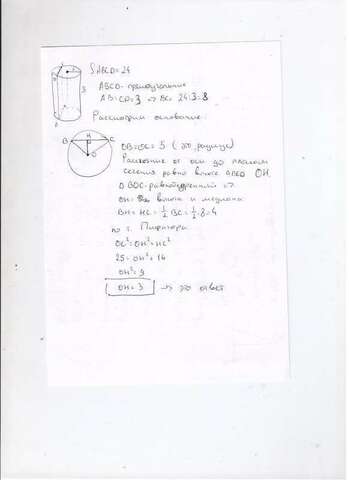 S ABCD = 24
ABCD - прямоугольник
AB = CD = 3 => BC = 24:3 = 8
Рассмотрим основание:
B H C
O
OB = OC = 5 (это радиусы)
Расстояние от оси до плоскости
сечения равно высоте OH
Δ BOC - равнобедренный =>
OH - высота и медиана
BH = HC = 1/2 BC = 1/2 · 8 = 4
по т. Пифагора
OC² = OH² + HC²
25 = OH² + 16
OH² = 9
OH = 3 -> это ответ